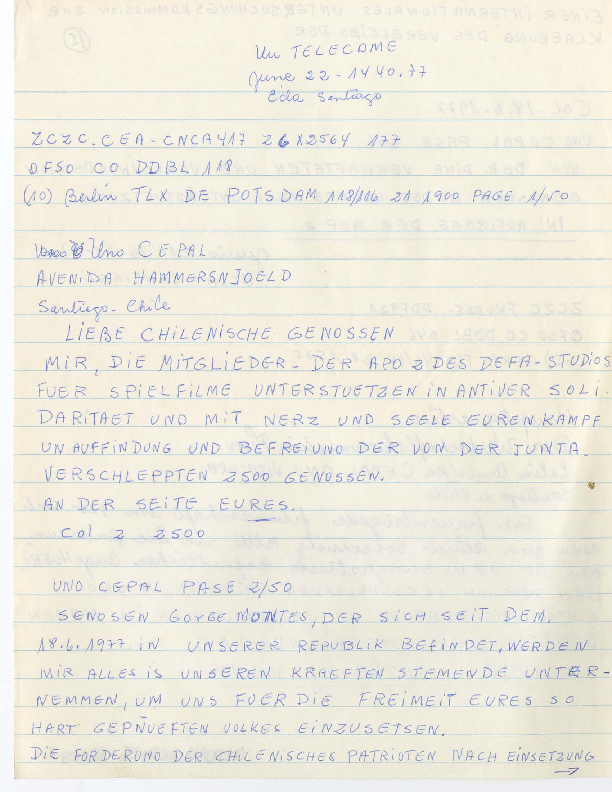 Un TELECOME
june 22-1440.77
Ecla Santiago
ZCZC.CEA-CNCA417 Z6X2564 177
DFSO CO DDBL 118
(10) Berlin TLX DE POTSDAM 118/116 21 1900 PAGE 1/50
Uno CEIPAL
AVENIDA HAMMERSNJOELD
Santiago-Chile
LIEBE CHILENISCHE GENOSSEN
MIR, DIE MITGLIEDER-DER APO 2 DES DEFA-STUDIOS
FUER SPIELFILME UNTERSTUETZEN IN ANTIVER SOLI.
DARITAET UND MIT NERZ UND SEELE EUREN KAMPF
UN AUFFINDUNG UND BEFREIUNO DER VON DER JUNTA.
VERSCHLEPPTEN 2500 GENOSSEN.
AN DER SEITE EURES.
COL 2 2500
UNO CEPAL PASE 2/50
SENOSEN GORGE MONTES, DER SICH SEIT DEM.
18.6.1977 IN UNSERER REPUBLIK BEFINDET, WERDEN
MIR ALLES IS UNSEREN KRAEFTEN STEMENDE UNTER-
NEMMEN, UM UNS FUER DIE FREIMEIT EURES SO
HART GEPÑUEFTEN VOLKES EINZUSETSEN.
DIE FORDERUNO DER CHILENISCHES PATRIOTEN NACH EINSETZUNG